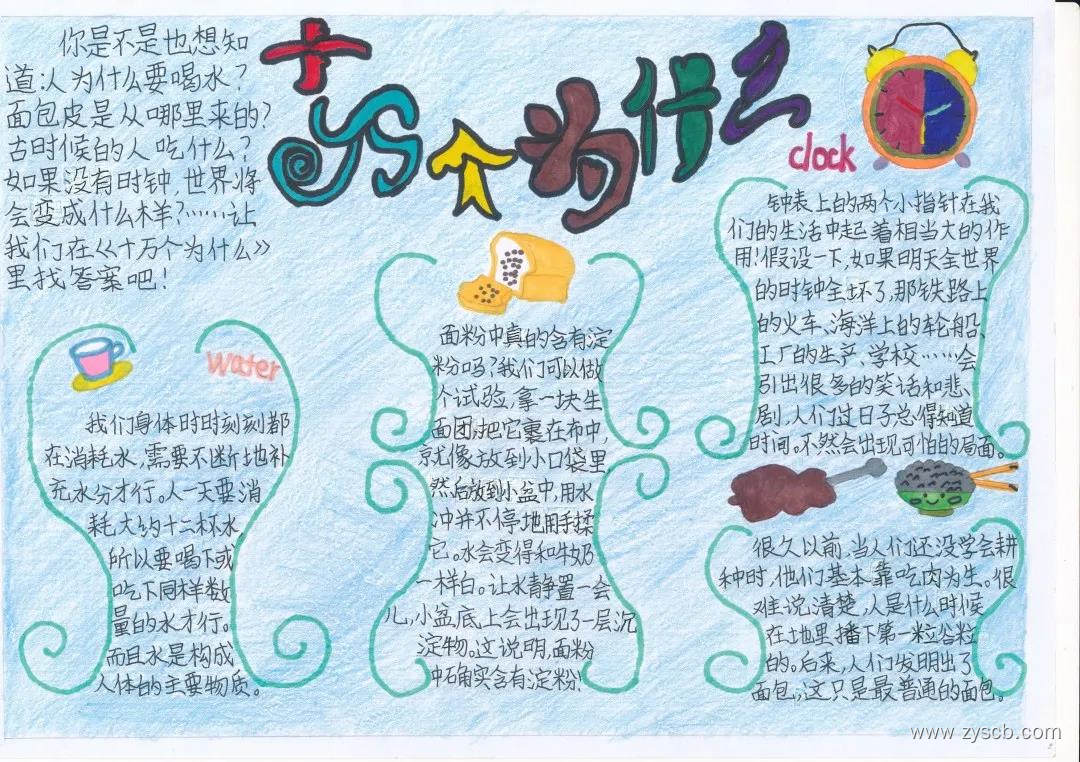 十万个为什么
你是不是也想知
道:人为什么要喝水?
面包皮是从哪里来的?
古时候的人吃什么?
如果没有时钟,世界将
会变成什么样?……让
我们在《十万个为什么》
里找答案吧!
water
我们身体时时刻刻都
在消耗水,需要不断地补
充水分才行。人一天要消
耗大约十二杯水,
所以要喝下或
吃下同样数
量的水才行。
而且水是构成
人体的主要物质。
面粉中真的含有淀
粉吗?我们可以做
个试验,拿一块生
面团,把它裹在布中,
就像放到小口袋里,
然后放到小盆中,用水
冲并不停地用手揉
它。水会变得和牛奶
一样白。让水静置一会
儿,小盆底上会出现了一层沉
淀物。这说明,面粉
中确实含有淀粉!
clock
钟表上的两个小指针在我
们的生活中起着相当大的作
用!假设一下,如果明天全世界
的时钟全坏了,那铁路上
的火车、海洋上的轮船、
工厂的生产、学校……会
引出很多的笑话和悲
剧,人们过日子总得知道
时间。不然会出现可怕的局面。
很久以前,当人们还没学会耕
种时,他们基本靠吃肉为生。很
难说清楚,人是什么时候
在地里播下第一粒谷粒
的。后来,人们发明出了
面包,这只是最普通的面包。
www.zyscb.com